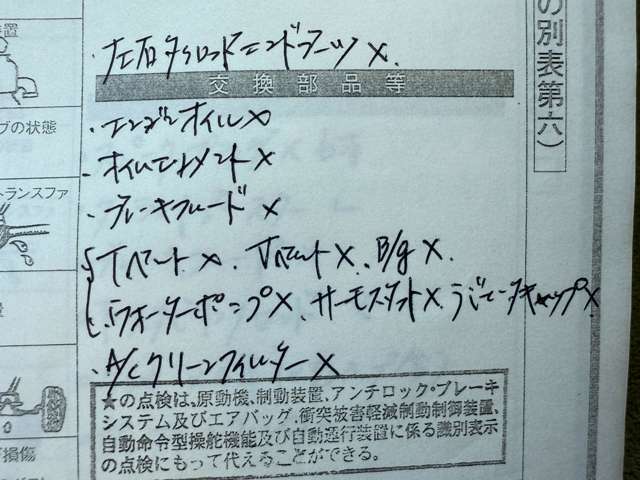 の別表第六)
装置
・左右タイロッドエンドブーツ ×.
交換部品等
ブの状態
・エンジンオイル ×
・オイルエレメント ×
トランスファ
・ブレーキフルード ×
Tベルト ×. Vベルト ×. B/g ×.
ウォーターポンプ ×. サーモスタット ×. ラジエータキャップ ×
・A/Cクリーンフィルター ×
★の点検は、原動機、制動装置、アンチロック・ブレーキ
システム及びエアバッグ、衝突被害軽減制動制御装置、
自動命令型操舵機能及び自動運行装置に係る識別表示
の点検にもって代えることができる。
損傷